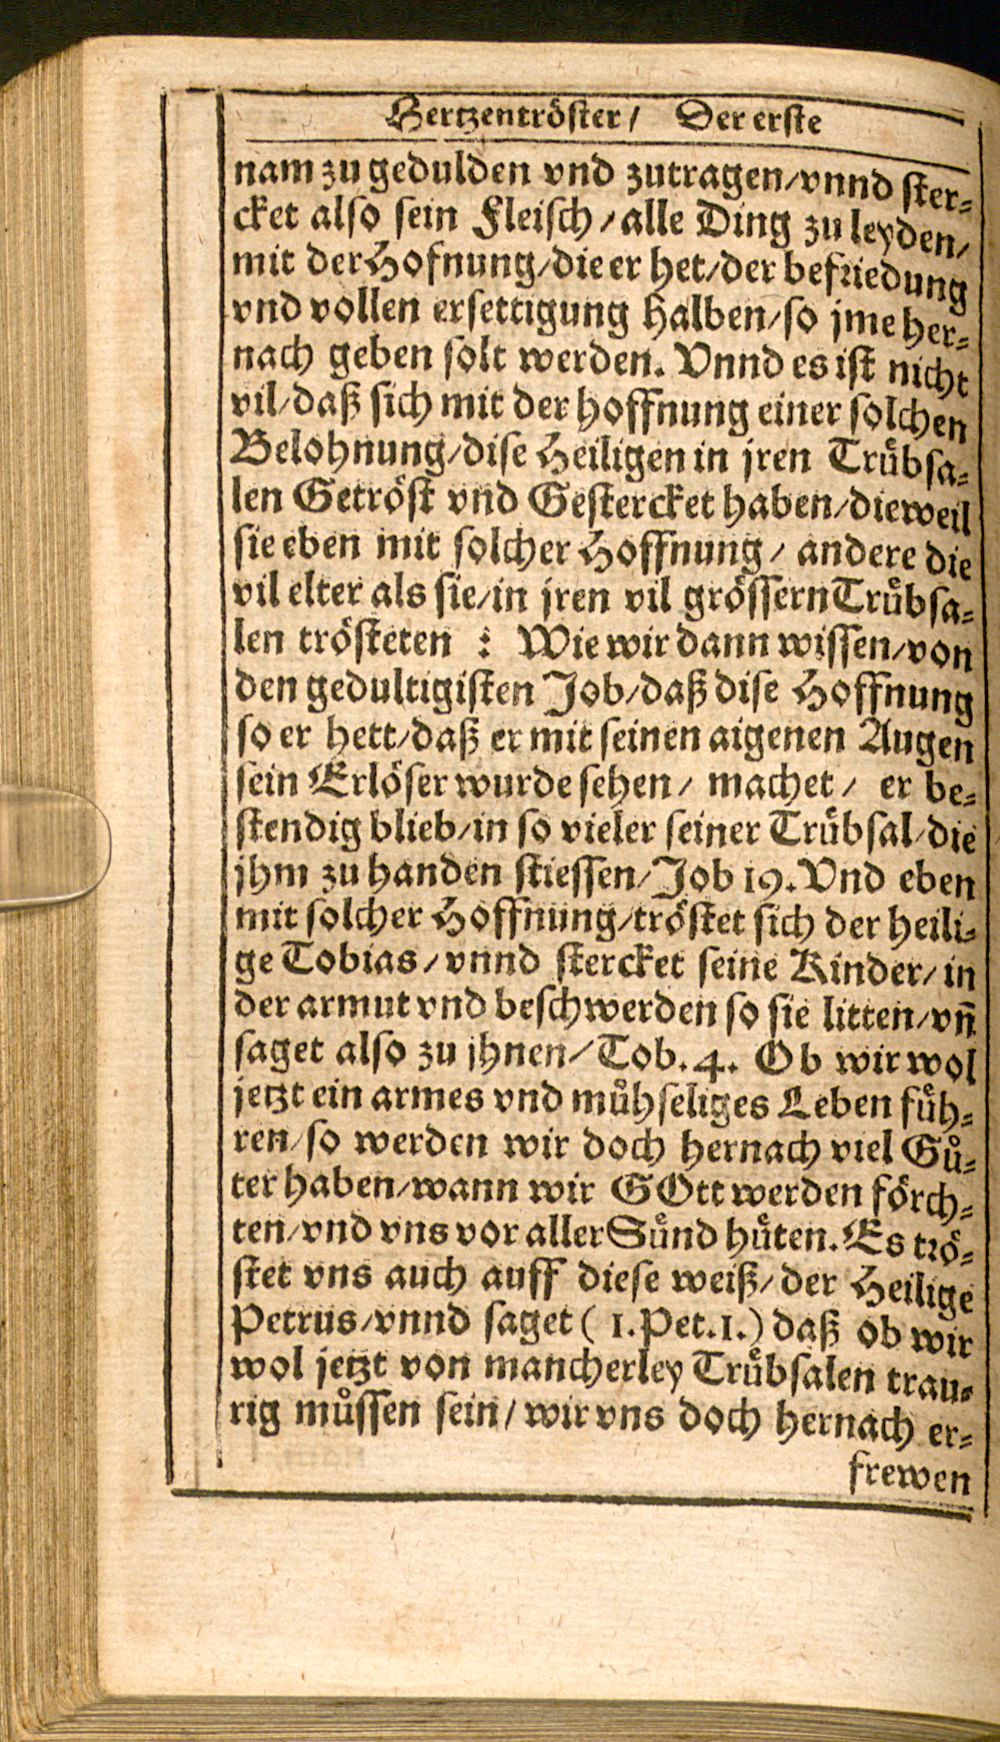 Hertzentröster/ Der erste
nam zu gedulden vnd zutragen/vnnd ster⸗
cket also sein Fleisch/alle Ding zu leyden/
mit der Hofnung/die er het/der befriedung
vnd vollen ersettigung halben/so jme her⸗
nach geben solt werden. Vnnd es ist nicht
vil/daß sich mit der hoffnung einer solchen
Belohnung/dise Heiligen in jren Truͤbsa⸗
len Getröst vnd Gestercket haben/dieweil
sie eben mit solcher Hoffnung/ andere die
vil elter als sie/in jren vil grössern Truͤbsa⸗
len trösteten : Wie wir dann wissen/von
den gedultigisten Job/daß dise Hoffnung
so er hett/daß er mit seinen aigenen Augen
sein Erlöser wurde sehen/ machet/ er be⸗
stendig blieb/in so vieler seiner Truͤbsal/die
jhm zu handen stiessen/Job 19. Vnd eben
mit solcher Hoffnung/tröstet sich der heili⸗
ge Tobias/vnnd stercket seine Kinder/in
der armut vnd beschwerden so sie litten/vn̄
saget also zu jhnen/Tob. 4. Ob wir wol
jetzt ein armes vnd muͤhseliges Leben fuͤh⸗
ren/so werden wir doch hernach viel Guͤ⸗
ter haben/wann wir GOtt werden förch⸗
ten/vnd vns vor aller Suͤnd huͤten. Es trö⸗
stet vns auch auff diese weiß/der Heilige
Petrus/vnnd saget ( 1. Pet. 1.) daß ob wir
wol jetzt von mancherley Truͤbsalen trau⸗
rig muͤssen sein/wir vns doch hernach er⸗
frewen